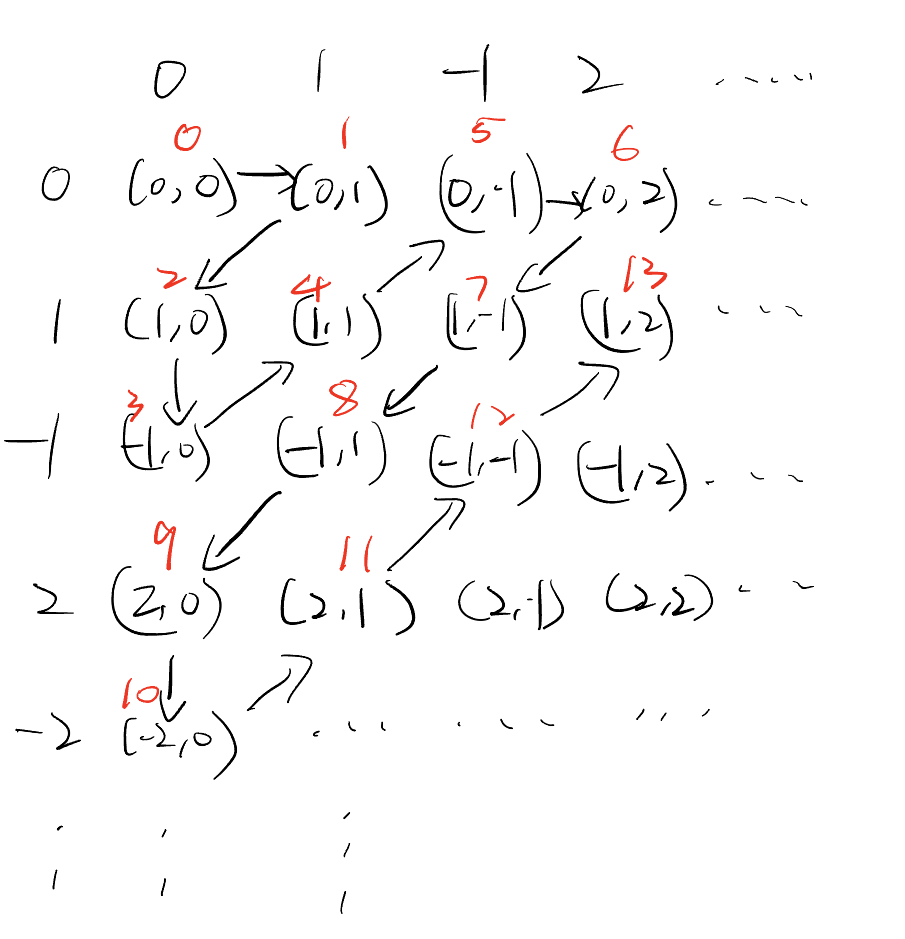 0 1 -1 2 ......
0 1 5 6
0 (0,0) (0,1) (0,-1) (0,2) .....
2 4 7 13
1 (1,0) (1,1) (1,-1) (1,2) ...
3 8 12
-1 (-1,0) (-1,1) (-1,-1) (-1,2) ...
9 11
2 (2,0) (2,1) (2,-1) (2,2) ...
10
-2 (-2,0) ... ... ...